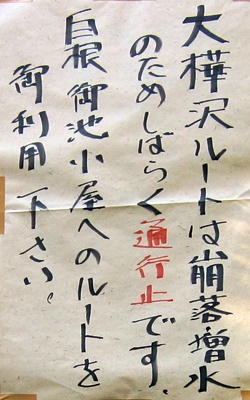 大樺沢ルートは崩落増水
のためしばらく通行止です、
白根御池小屋へのルートを
御利用下さい。